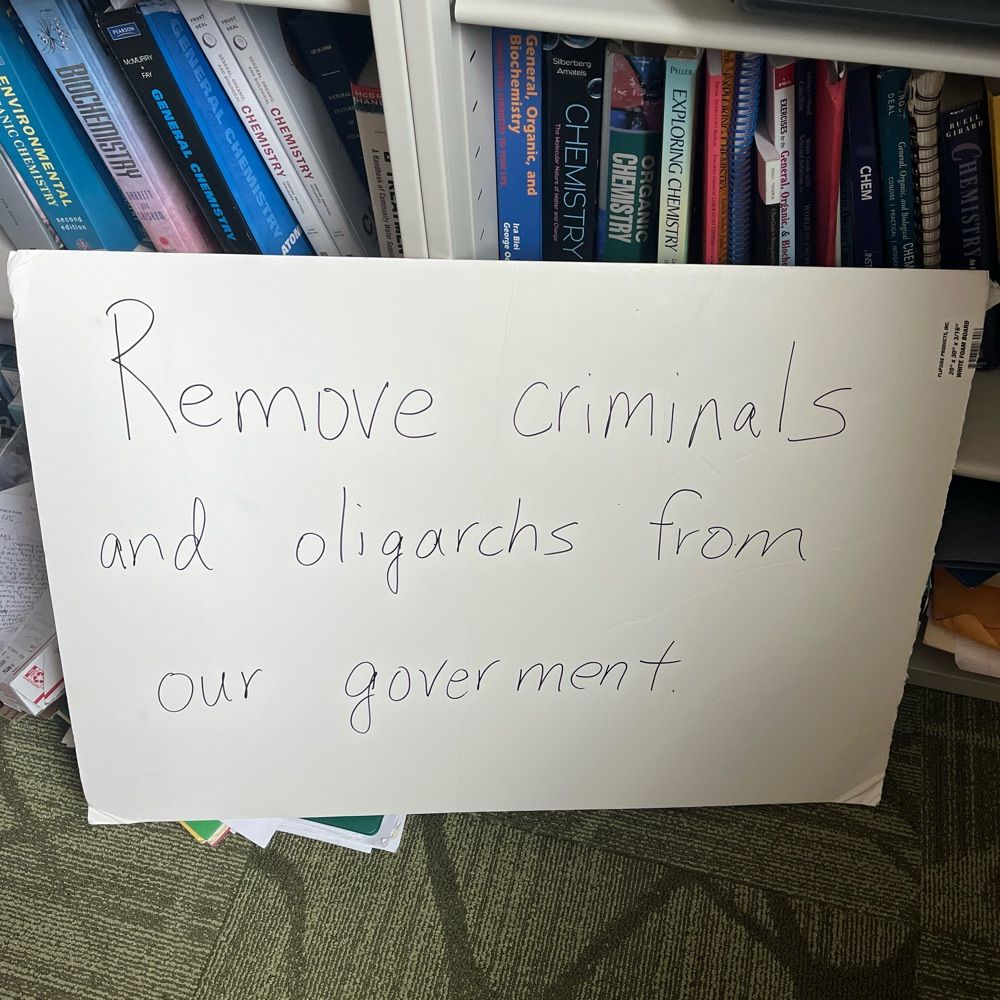 ENVIRONMENTAL
ORGANIC CHEMISTRY
second
edition
BIOCHEMISTRY
PEARSON
McMURRY
FAY
GENERAL CHEMISTRY
GENERAL CHEMISTRY
EATON
FROST
DEAL
CHEMISTRY
FROST
DEAL
CHEMISTRY
General, Organic, and
Biochemistry
Ira Blei
Silberberg
Amateis
CHEMISTRY
The Molecular Nature of Matter and Change
ORGANIC
CHEMISTRY
PELLER
EXPLORING CHEMISTRY
EXERCISES for the General, Organic, & Bioch
CHEM
DEAL
General, Organic, and Biological
CHEM
BUELL
GIRARD
CHEMISTRY
FLIPSIDE PRODUCTS, INC.
20" X 30" X 3/16"
WHITE FOAM BOARD
Remove criminals
and oligarchs from
our goverment.